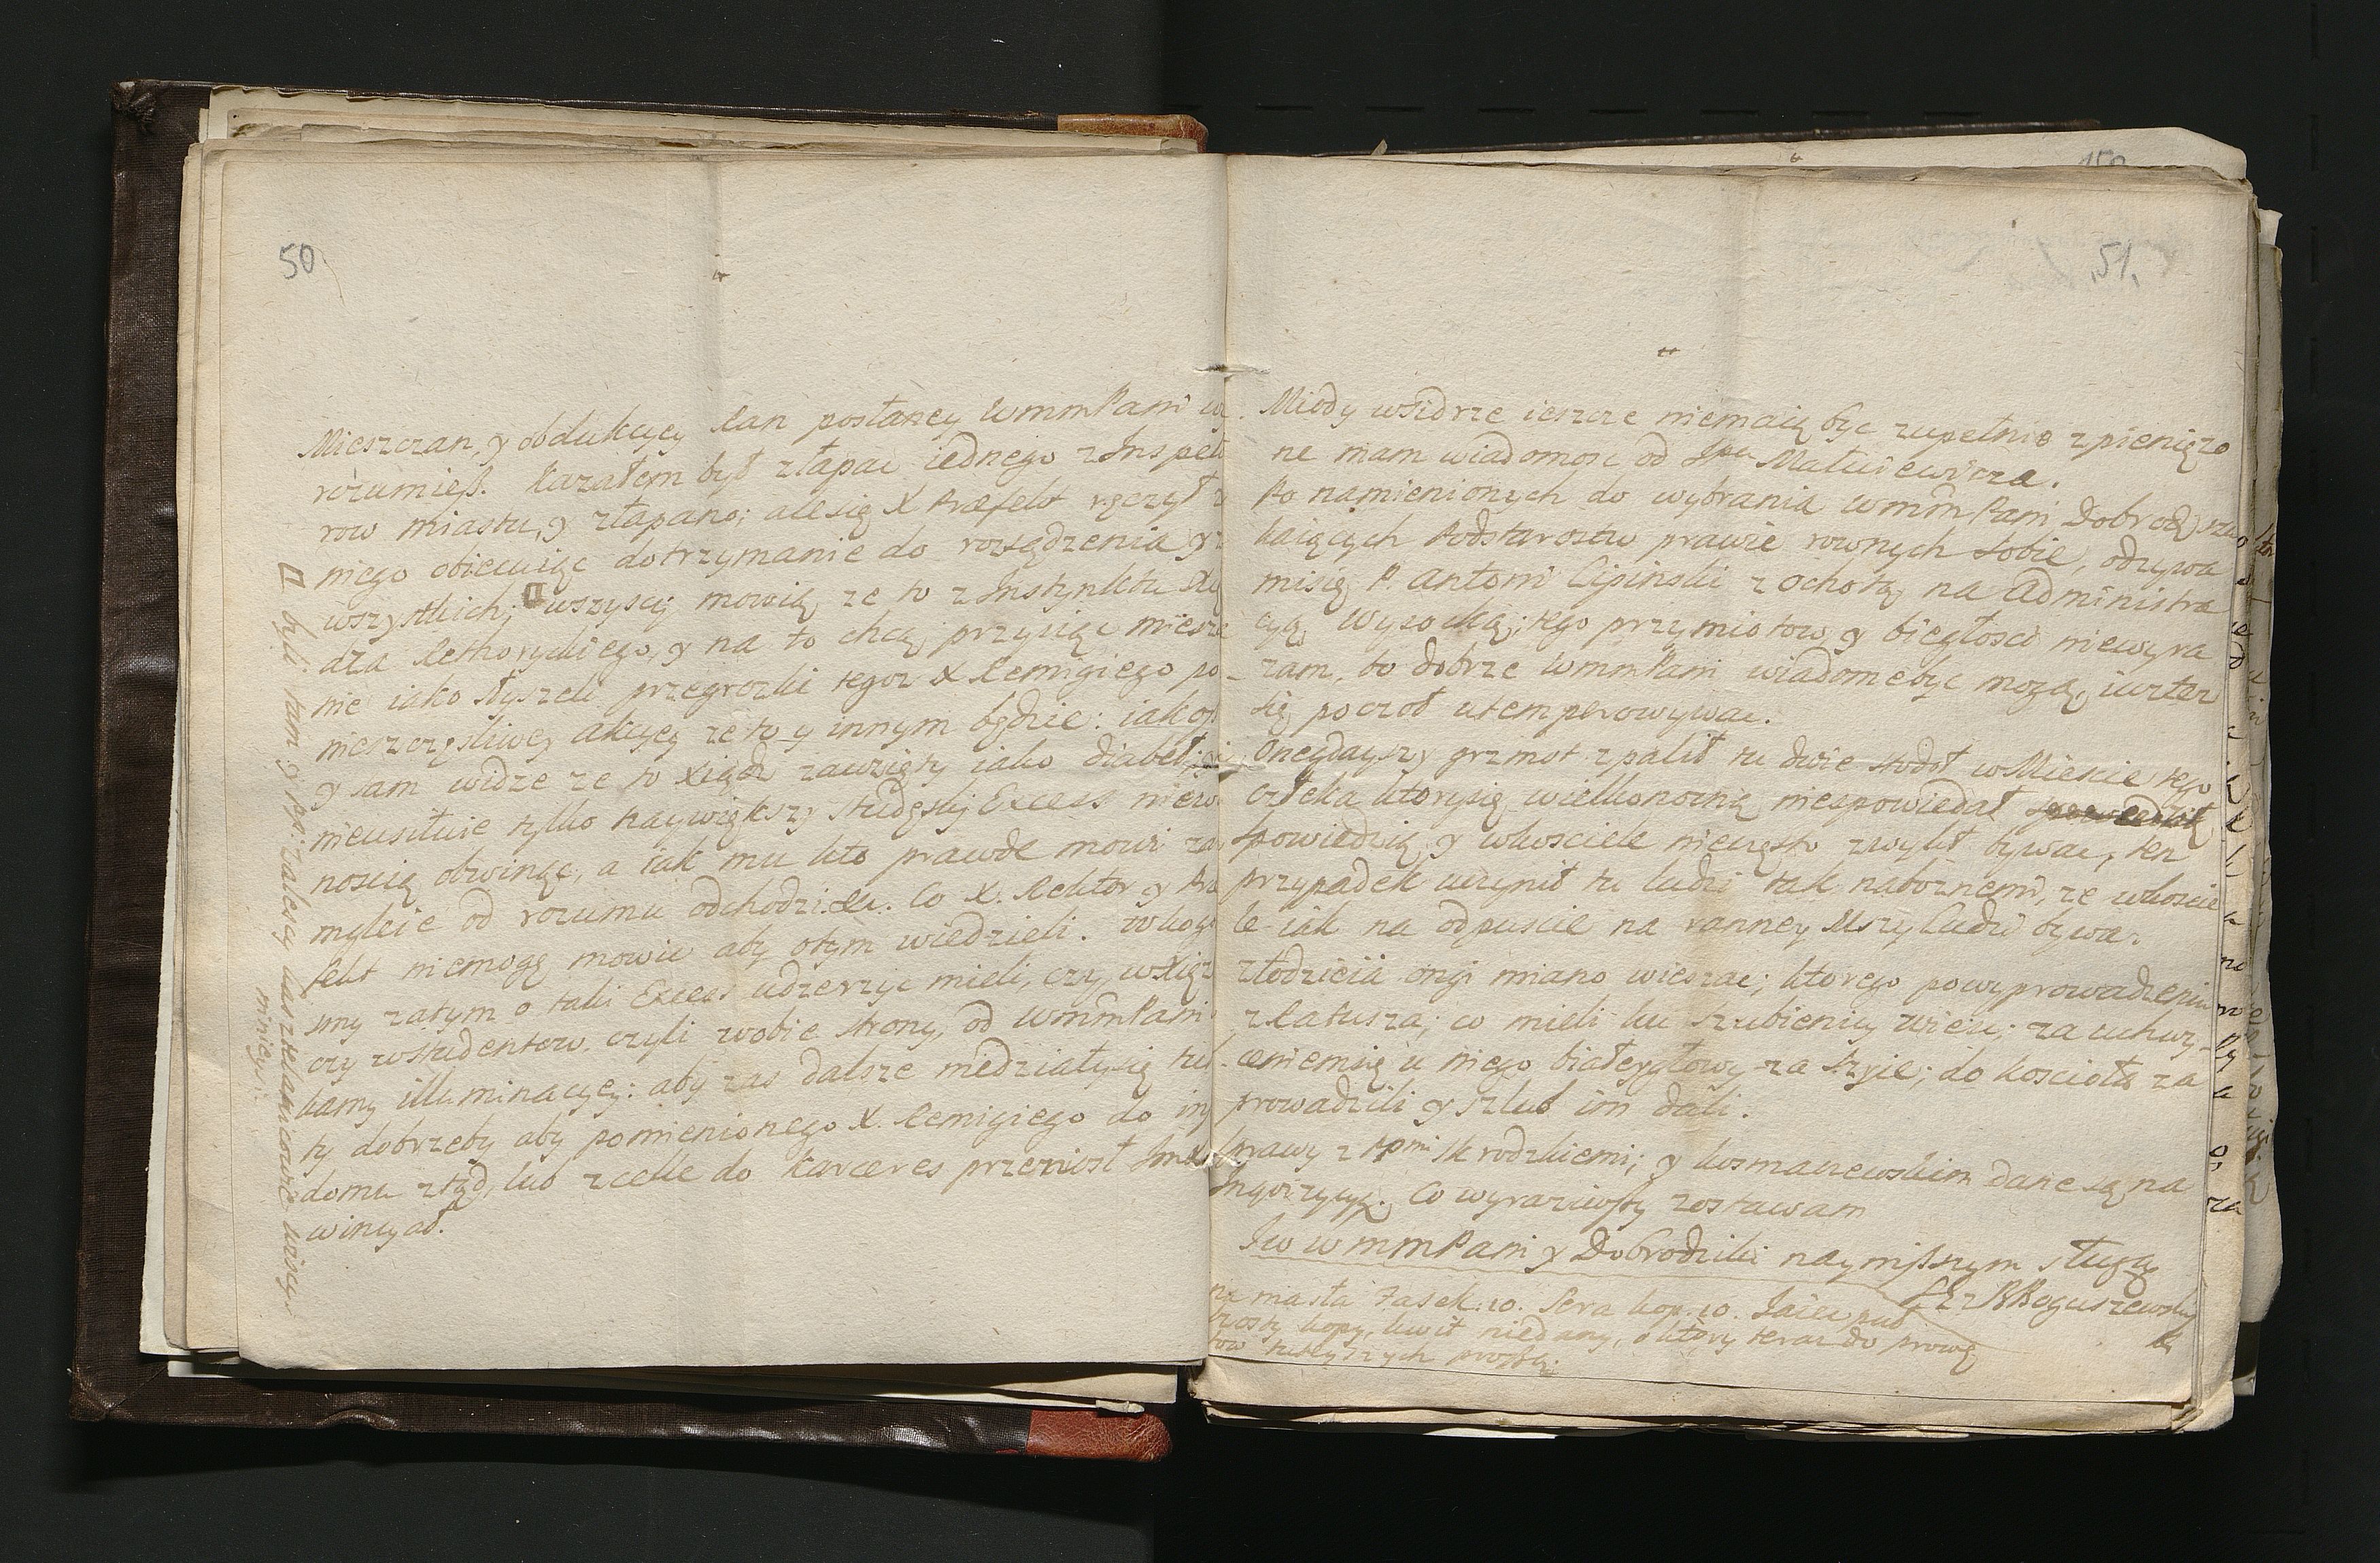 50
Mieszczan, y obdukcyey Ran posłaney WmmPani
rozumieß. Kazałem był złapac iednego z Inspek
row miastu, y złapano; ale się X Præfekt ręczył
niego obiecuiąc dotrzymanie do rozsądzenia
wszystkich; wszyscy mowią ze to z Instynktu
dza Rethoryckiego, y na to chcą przysiąc miesz
nie iako słyszeli przegrozki tegoz X Remigiego po
nieszczęsliwey akcyey ze to y innym będzie: iakosz
y sam widze ze to Xiądz zawzięty iako diabeł,
nieusiłuie tylko naywiększy studęskij Excess
noscią obwinąc, a iak mu kto prawde mowi
mgleie od rozumu odchodzi. Co X. Rektor y Præ
fekt niemogę mowic aby otym wiedzieli. W kogo
smy zatym o taki Excess uderzyc mieli, czy w Xięz
czy w studentow, czyli w obie strony, od WmmPani
kamy illuminacyey: aby zas dalsze niedziały się
ty dobrzeby aby pomienionego X. Remigiego do
domu ztąd, lub z celle do Karceres przeniosł
wincyał.
byli tam y Pp: Zalescy kasztelanicowie wiscy.
51.
Miody w Sidrze ieszcze niemaią byc zupełnie zpienięzo
ne mam wiadomosc od Jpa Matusiewicza.
Po namienionych do wybrania WmmPani Dobrodz)
kaiących Podstarostw prawie rownych sobie, odzywa
mi się P. Antoni Lipinski z ochotą na Administra
cyą Wysocką; tego przymiotow, y biegłosci niewyra
zam, bo dobrze WmmPani wiadome byc mogą, iuz tez
się poczoł utemperowywac.
Onegdayszy grzmot zpalił tu dwie stodoł w Miescie tego
człeka ktory się wielkonocną niespowiedał
spowiedzią, y w kosciele nieczęsto zwykł bywac, ten
przypadek uczynił tu ludzi tak naboznemi, ze w kosciele
le iak na odpuscie na ranney Mszy ludzi bywa.
złodzieia ongi miano wieszac; ktorego po wyprowadzeniu
z Ratusza; co mieli ku szubienicy wiesc; za uchwy-
ceniem się u niego białeygłowy za szyie; do koscioła za
prowadzili y szlub im dali.
Sprawy z Ppmi Skrodzkiemi; y kosmaczewskim dane są na
Inqwizycyą. Co wyraziwszy zostawam
Jw WmmPani y Dobrodziki nayniszszym sługą
Boguszewski
masła fasek: 10. Sera kop. 10. Jaiec puł
kopy, kwit niedany, o ktory teraz do prowę
tow tuteyszych proszę.